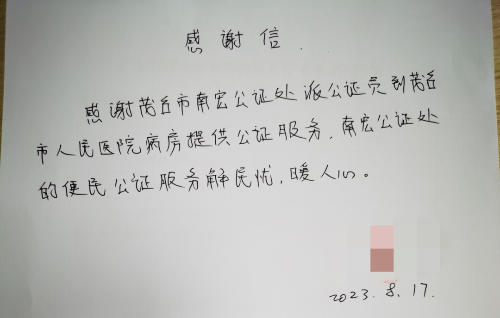 感谢信.
感谢茂名市南宏公证处派公证员到茂名
市人民医院病房提供公证服务，南宏公证处
的便民公证服务解民忧，暖人心。
2023.8.17.